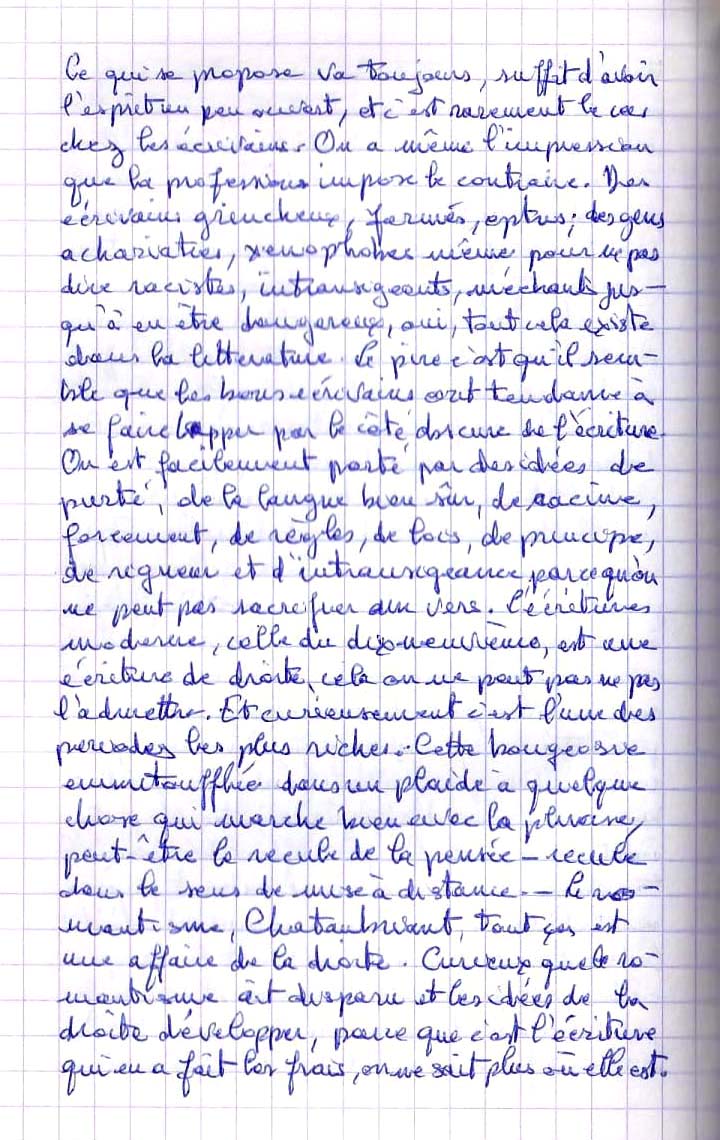 Ce qui se propose va toujours, suffit d'avoir
l'esprit un peu ouvert, et c'est rarement le cas
chez les écrivains. On a même l'impression
que la profession impose le contraire. Des
écrivains grincheux, fermés, optus; des gens
achariatres, xenophobes même pour ne pas
dire racistes, intransigeants, méchants jus-
qu'à en être dangereux, oui, tout cela existe
dans la littérature. Le pire c'est qu'il sem-
ble que les bons écrivains ont tendance à
se faire happer par le côté obscure de l'écriture.
On est facilement porté par des idées de
pureté, de la langue bien sûr, de racine,
forcement, de règles, de lois, de principe,
de rigueur et d'intransigeance parcequ'on
ne peut pas sacrefier un vers. L'écritures
moderne, celle du dixneuvième, est une
écriture de droite, cela on ne peut pas ne pas
l'admettre. Et curieusement c'est l'une des
periodes les plus riches. Cette bougeoisie
emmitoufflée dans un plaide à quelque
chose qui marche bien avec la plume,
peut-être le recule de la pensée - recule
dans le sens de mise à distance. - Le ro-
mantisme, Chataubriant, tout ças est
une affaire de la droite. Curieux que le ro-
mantisme ait disparu et les idées de la
droite développer, parce que c'est l'écriture
qui en a fait les frais, on ne sait plus où elle est.